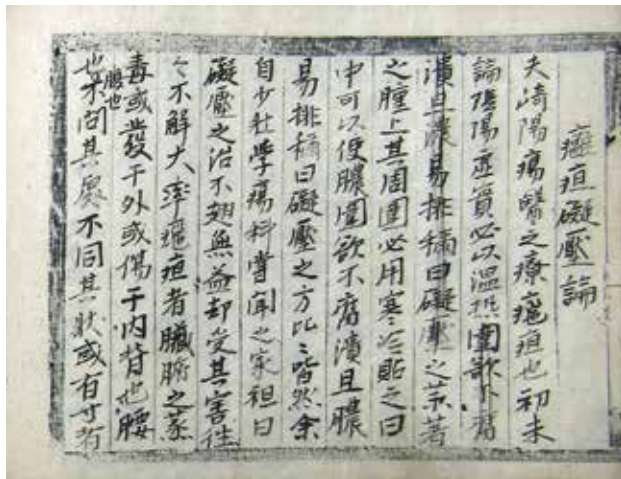 癰疽礙壓論
夫崎陽瘍醫之療癰疽也初未
論陰陽虛實必以溫熱圍欲不腐
潰且膿易排稱曰礙壓之方著
之腫上其周圍必用寒冷貼之曰
中可以使膿圍欲不腐潰且膿
易排稱曰礙壓之方比々皆然余
自少壯學瘍科嘗聞之家祖曰
礙壓之治不翅無益却受其害往
々不解大率癰疽者臟腑之蒸
毒或發于外或傷于內背也腰
也腹也不問其處不同其狀或有寸者